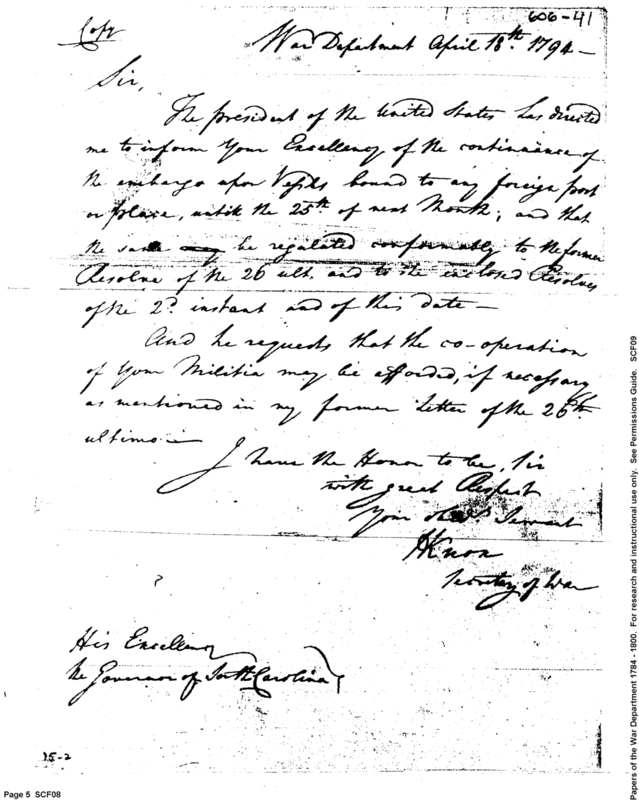 606-41
Copy
War Department April 18th. 1794 —
Sir,
The president of the United States has directed
me to inform Your Excellency of the continuance of
the embargo upon Vessels bound to any foreign port
or place, untill the 25th of next Month; and that
the same may be regulated conformably to the former
Resolve of the 26 ult. and to the inclosed Resolves
of the 2d. instant and of this date —
And he requests that the co-operation
of Your Militia may be afforded, if necessary
as mentioned in my former Letter of the 26th
ultimo —
I have the Honor to be, Sir
with great Respect
Your Servant
HKnox
Secretary of War
His Excellency
the Governor of South Carolina
15-2
Page 5 SCF08
Papers of the War Department 1784 - 1800. For research and instructional use only. See Permissions Guide. SCF09